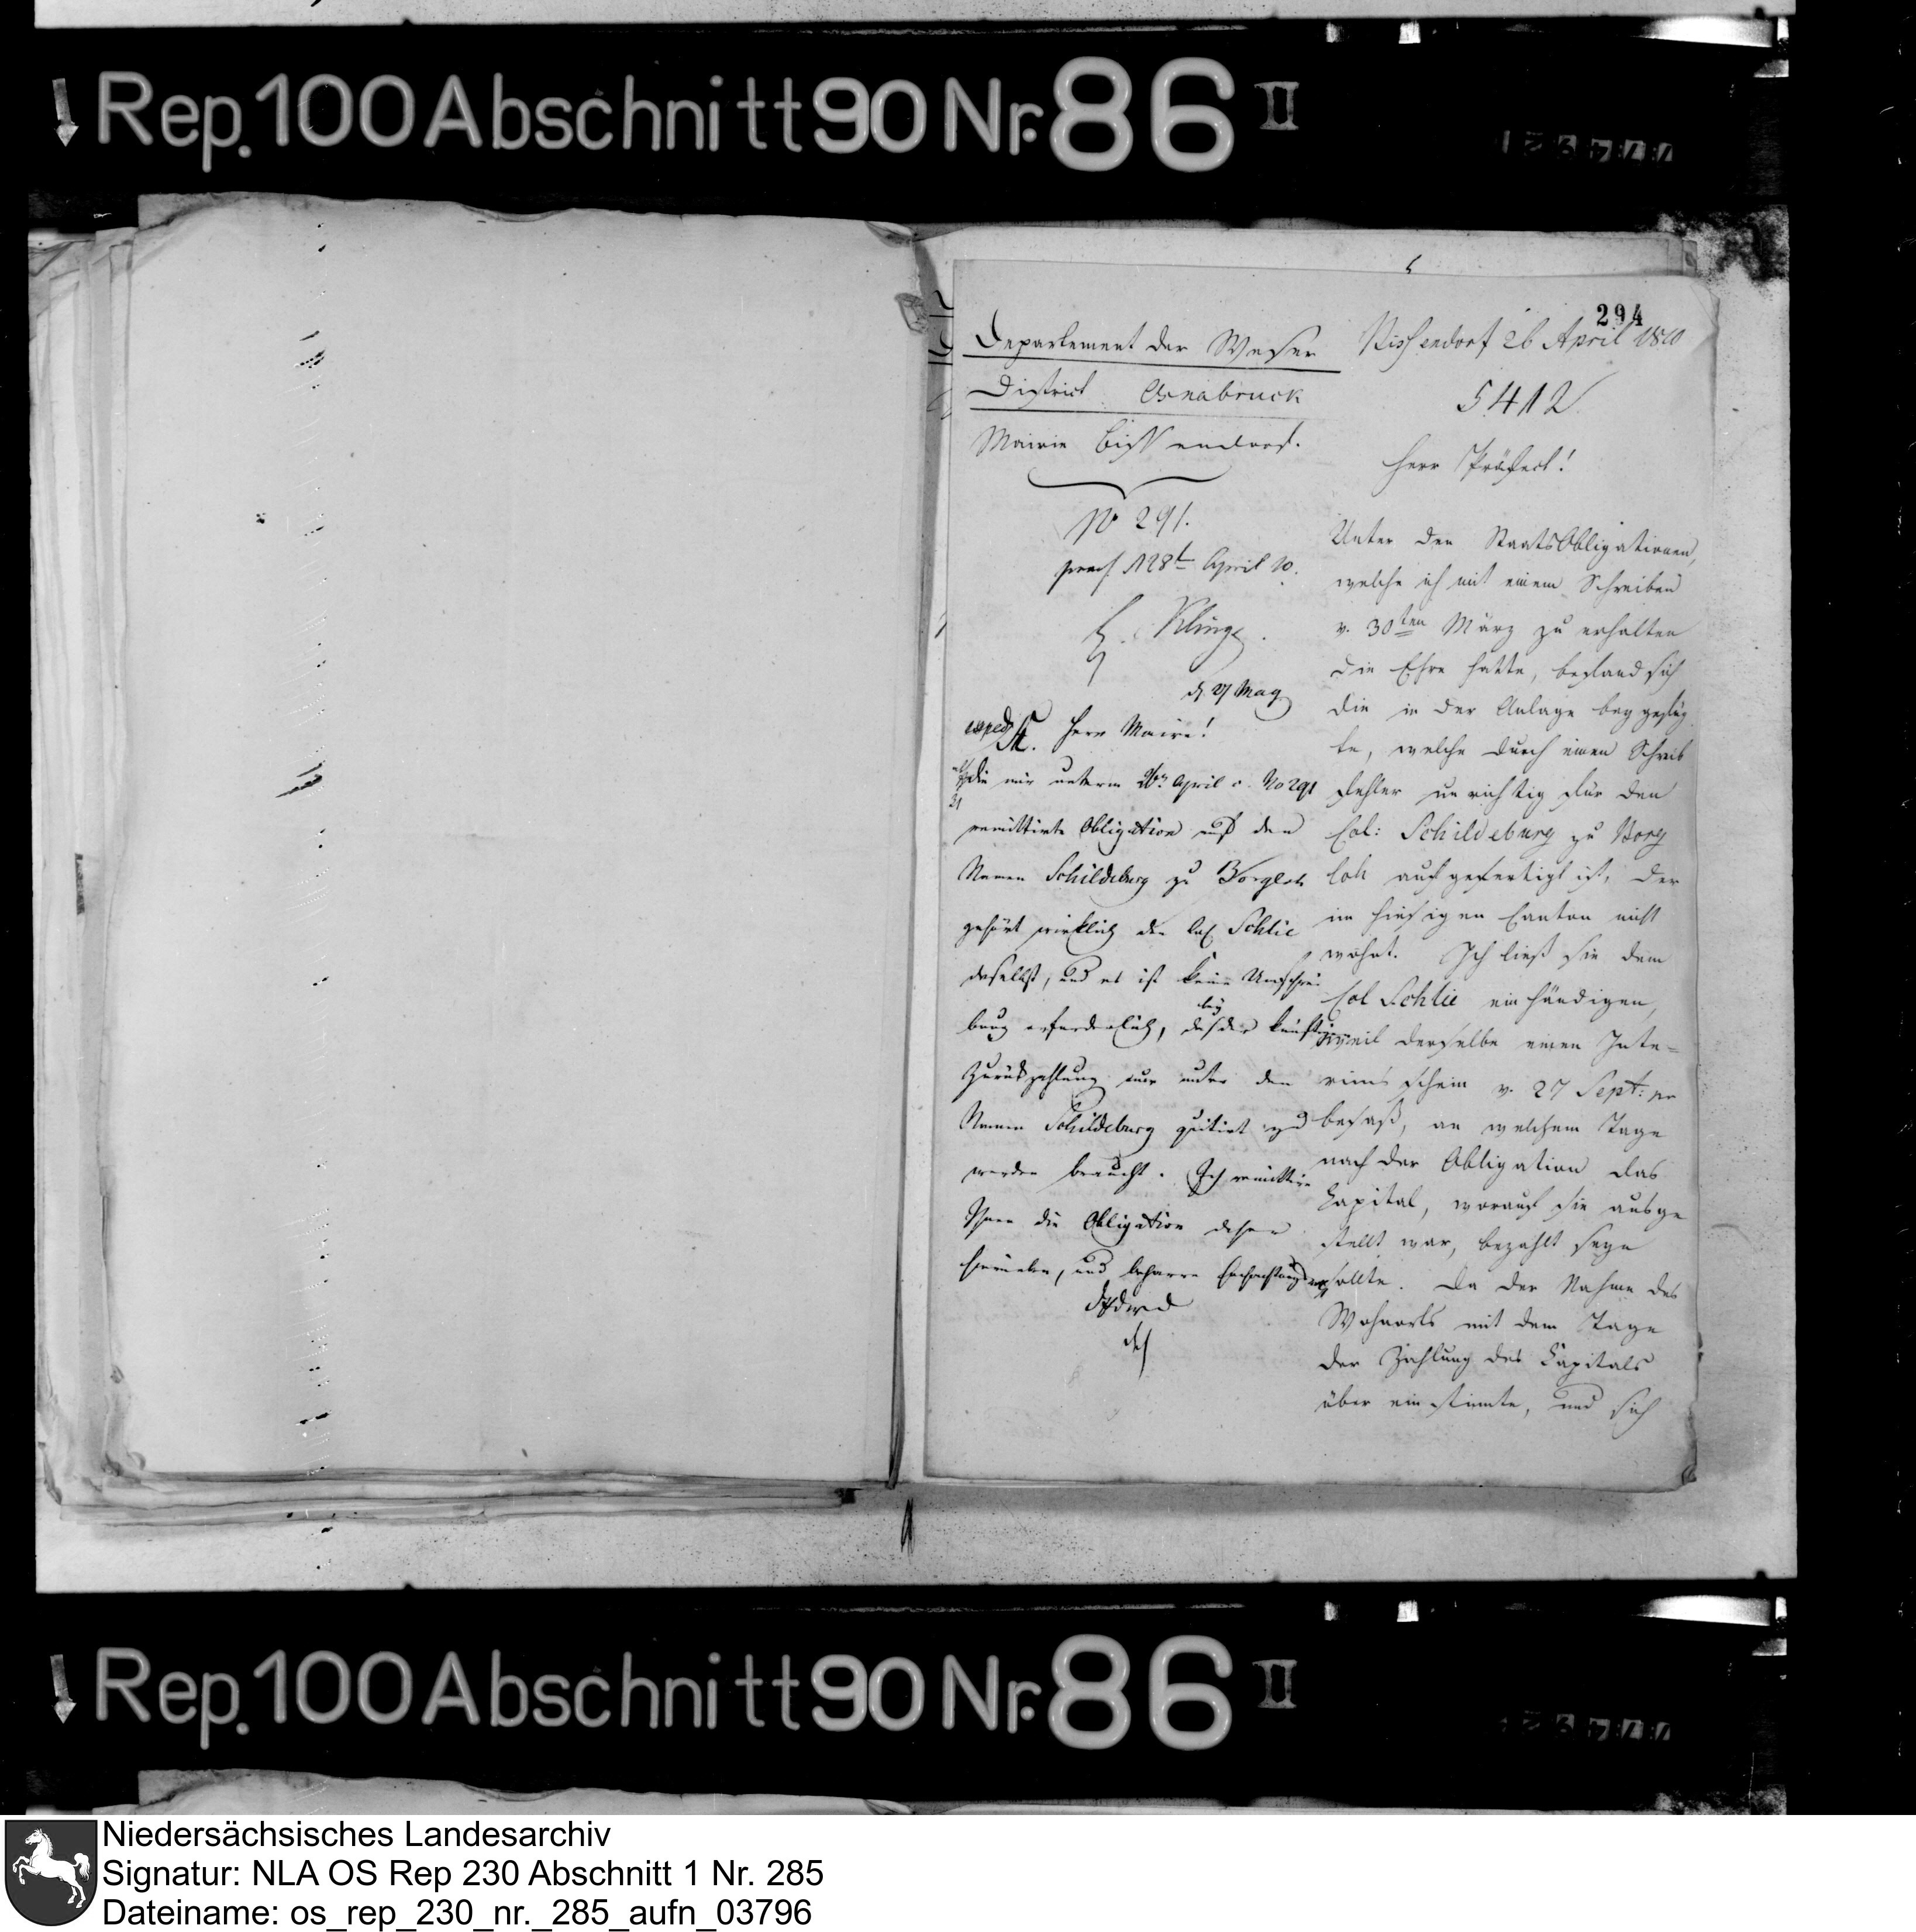 Rep. 100 Abschnitt 90 Nr. 86 II
294
Departement der Weser
District Osnabruck
Mairie Bissendorf.
No 291.
praes. d 28t April 10.
Klinge.
d. 27 May
exped. Herr Maire!
die mir unterm 26ten April c. No 291
remittirte Obligation auf den
Namen Schildeburg zu Borgloh
gehört wirklich dem Col. Schlie
daselbst, und es ist keine Umschrei
bung erforderlich, da bey der künftigen
Zurückzahlung nur unter dem
Namen Schildeburg quitirt zu
werden braucht. Ich remittire
Ihnen die Obligation daher
hierneben, und beharre hochachtungsvoll
Bissendorf 26 April 1810
5412
Herr Präfect!
Unter den StaatsObligationen,
welche ich mit einem Schreiben
v. 30sten März zu erhalten
die Ehre hatte, befand sich
die in der Anlage beygefüg
te, welche durch einen Schreib
fehler unrichtig für den
Col: Schildeburg zu Borg
loh ausgefertigt ist, der
im hiesigen Canton nicht
wohnt. Ich ließ sie dem
Col Schlie einhändigen,
weil derselbe einen Inte=
rims schein v. 27 Sept: pr
besaß, an welchem Tage
nach der Obligation das
Capital, worauf sie ausge
stellt war, bezahlt seyn
sollte. Da der Nahme des
Wohnorts mit dem Tage
der Zahlung des Capitals
über ein stimte, und sich
Rep. 100 Abschnitt 90 Nr. 86 II
Niedersächsisches Landesarchiv
Signatur: NLA OS Rep 230 Abschnitt 1 Nr. 285
Dateiname: os_rep_230_nr._285_aufn_03796